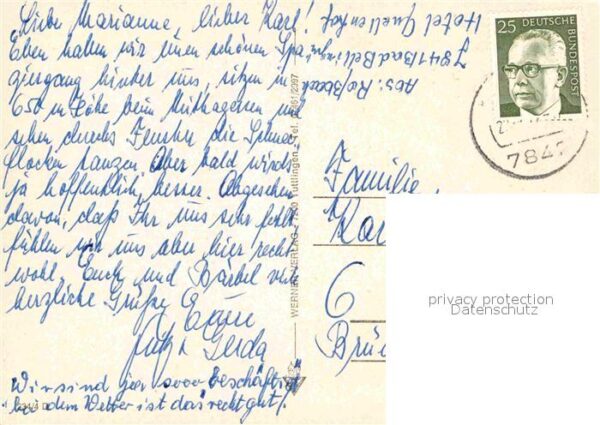 Liebe Marianne, lieber Karl!
Eben haben wir einen schönen Spa-
ziergang hinter uns, sitzen in
650 m Höhe beim Mittagessen und
sehen durchs Fenster die Schnee-
flocken tanzen. Aber bald wirds
ja hoffentlich besser. Abgesehen
davon, daß Ihr uns sehr fehlt
fühlen wir uns aber hier recht
wohl. Euch und Bärbel viele
herzliche Grüße Eure
Fritz + Gerda
Wir sind ja sooo beschäftigt
bei dem Wetter ist das recht gut!
Abs: Roßbach
7841 Bad Bellingen
Hotel Quellenhof
WERNER VERLAG 7200 Tuttlingen Tel.
25 DEUTSCHE
BUNDESPOST
784
Familie
Kar
6
Brü
privacy protection
Datenschutz